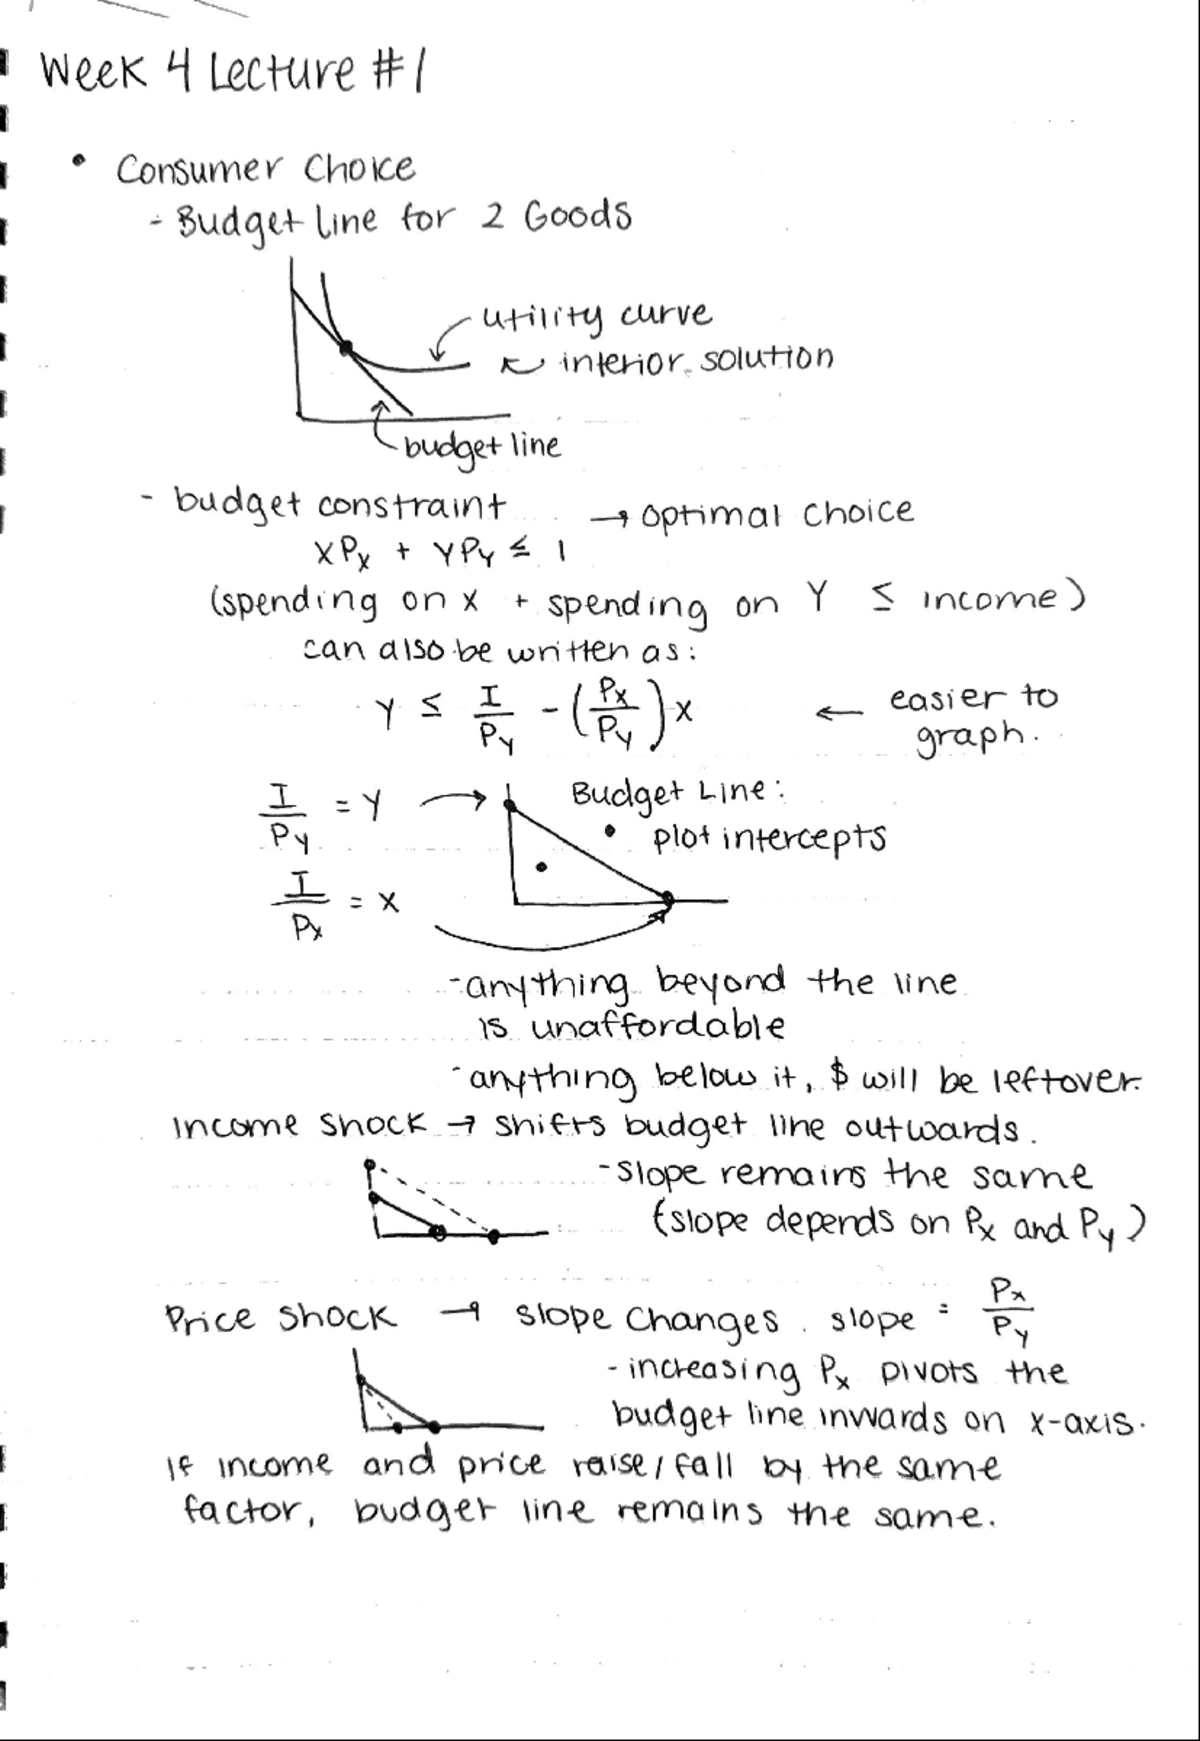 Week 4 Lecture #1
• Consumer Choice
- Budget line for 2 Goods
utility curve
interior solution
budget line
- budget constraint → optimal choice
XPx + YPy ≤ I
(spending on x + spending on Y ≤ income)
can also be written as:
Y ≤ I/Py - (Px/Py)x ← easier to
graph.
I/Py = Y → Budget Line:
• plot intercepts
I/Px = X
- anything beyond the line
is unaffordable
- anything below it, $ will be leftover.
Income Shock → shifts budget line outwards.
- slope remains the same
(slope depends on Px and Py)
Price Shock → slope changes. slope = Px/Py
- increasing Px pivots the
budget line inwards on x-axis.
If income and price raise/fall by the same
factor, budget line remains the same.